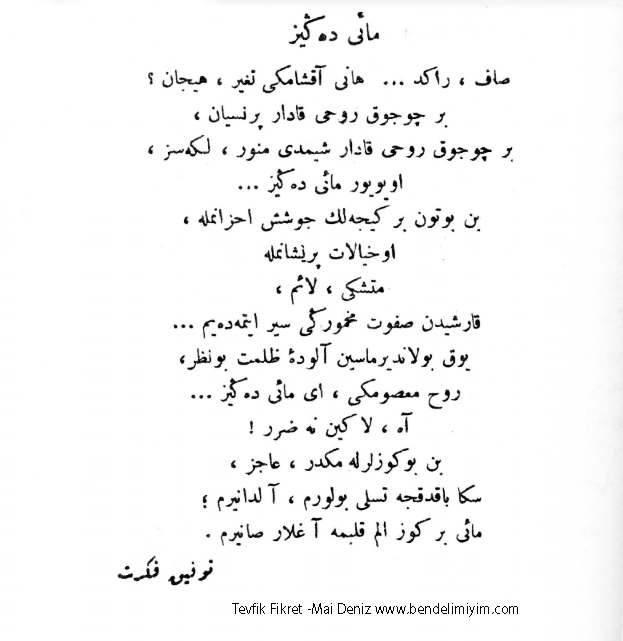 مائی ده‌ڭیز
صاف ، راكد ... هانی آقشامكی تغیر ، هیجان ؟
بر چوجوق روحی قادار پرنسیان ،
بر چوجوق روحی قادار شیمدی منور ، لكه‌سز ،
اویویور مائی ده‌ڭیز ...
بن بوتون بر كیجه‌لك جوشش احزانمله ،
اوخیالات پریشانمله
متشكی ، لائم ،
قارشیدن صفوت مخموركی سیر ایتمه‌ده‌یم ...
یوق بولاندیرماسین آلودهٔ ظلمت بونظر،
روح معصومكی ، ای مائی ده‌ڭیز ...
آه ، لاكین نه ضرر !
بن بوكوزلرله مكدر ، عاجز ،
سكا باقدقجه تسلی بولورم ، آلدانیرم ؛
مائی بر كوز الم قلبمه آغلار صانیرم .
توفیق فكرت
Tevfik Fikret -Mai Deniz www.bendelimiyim.com